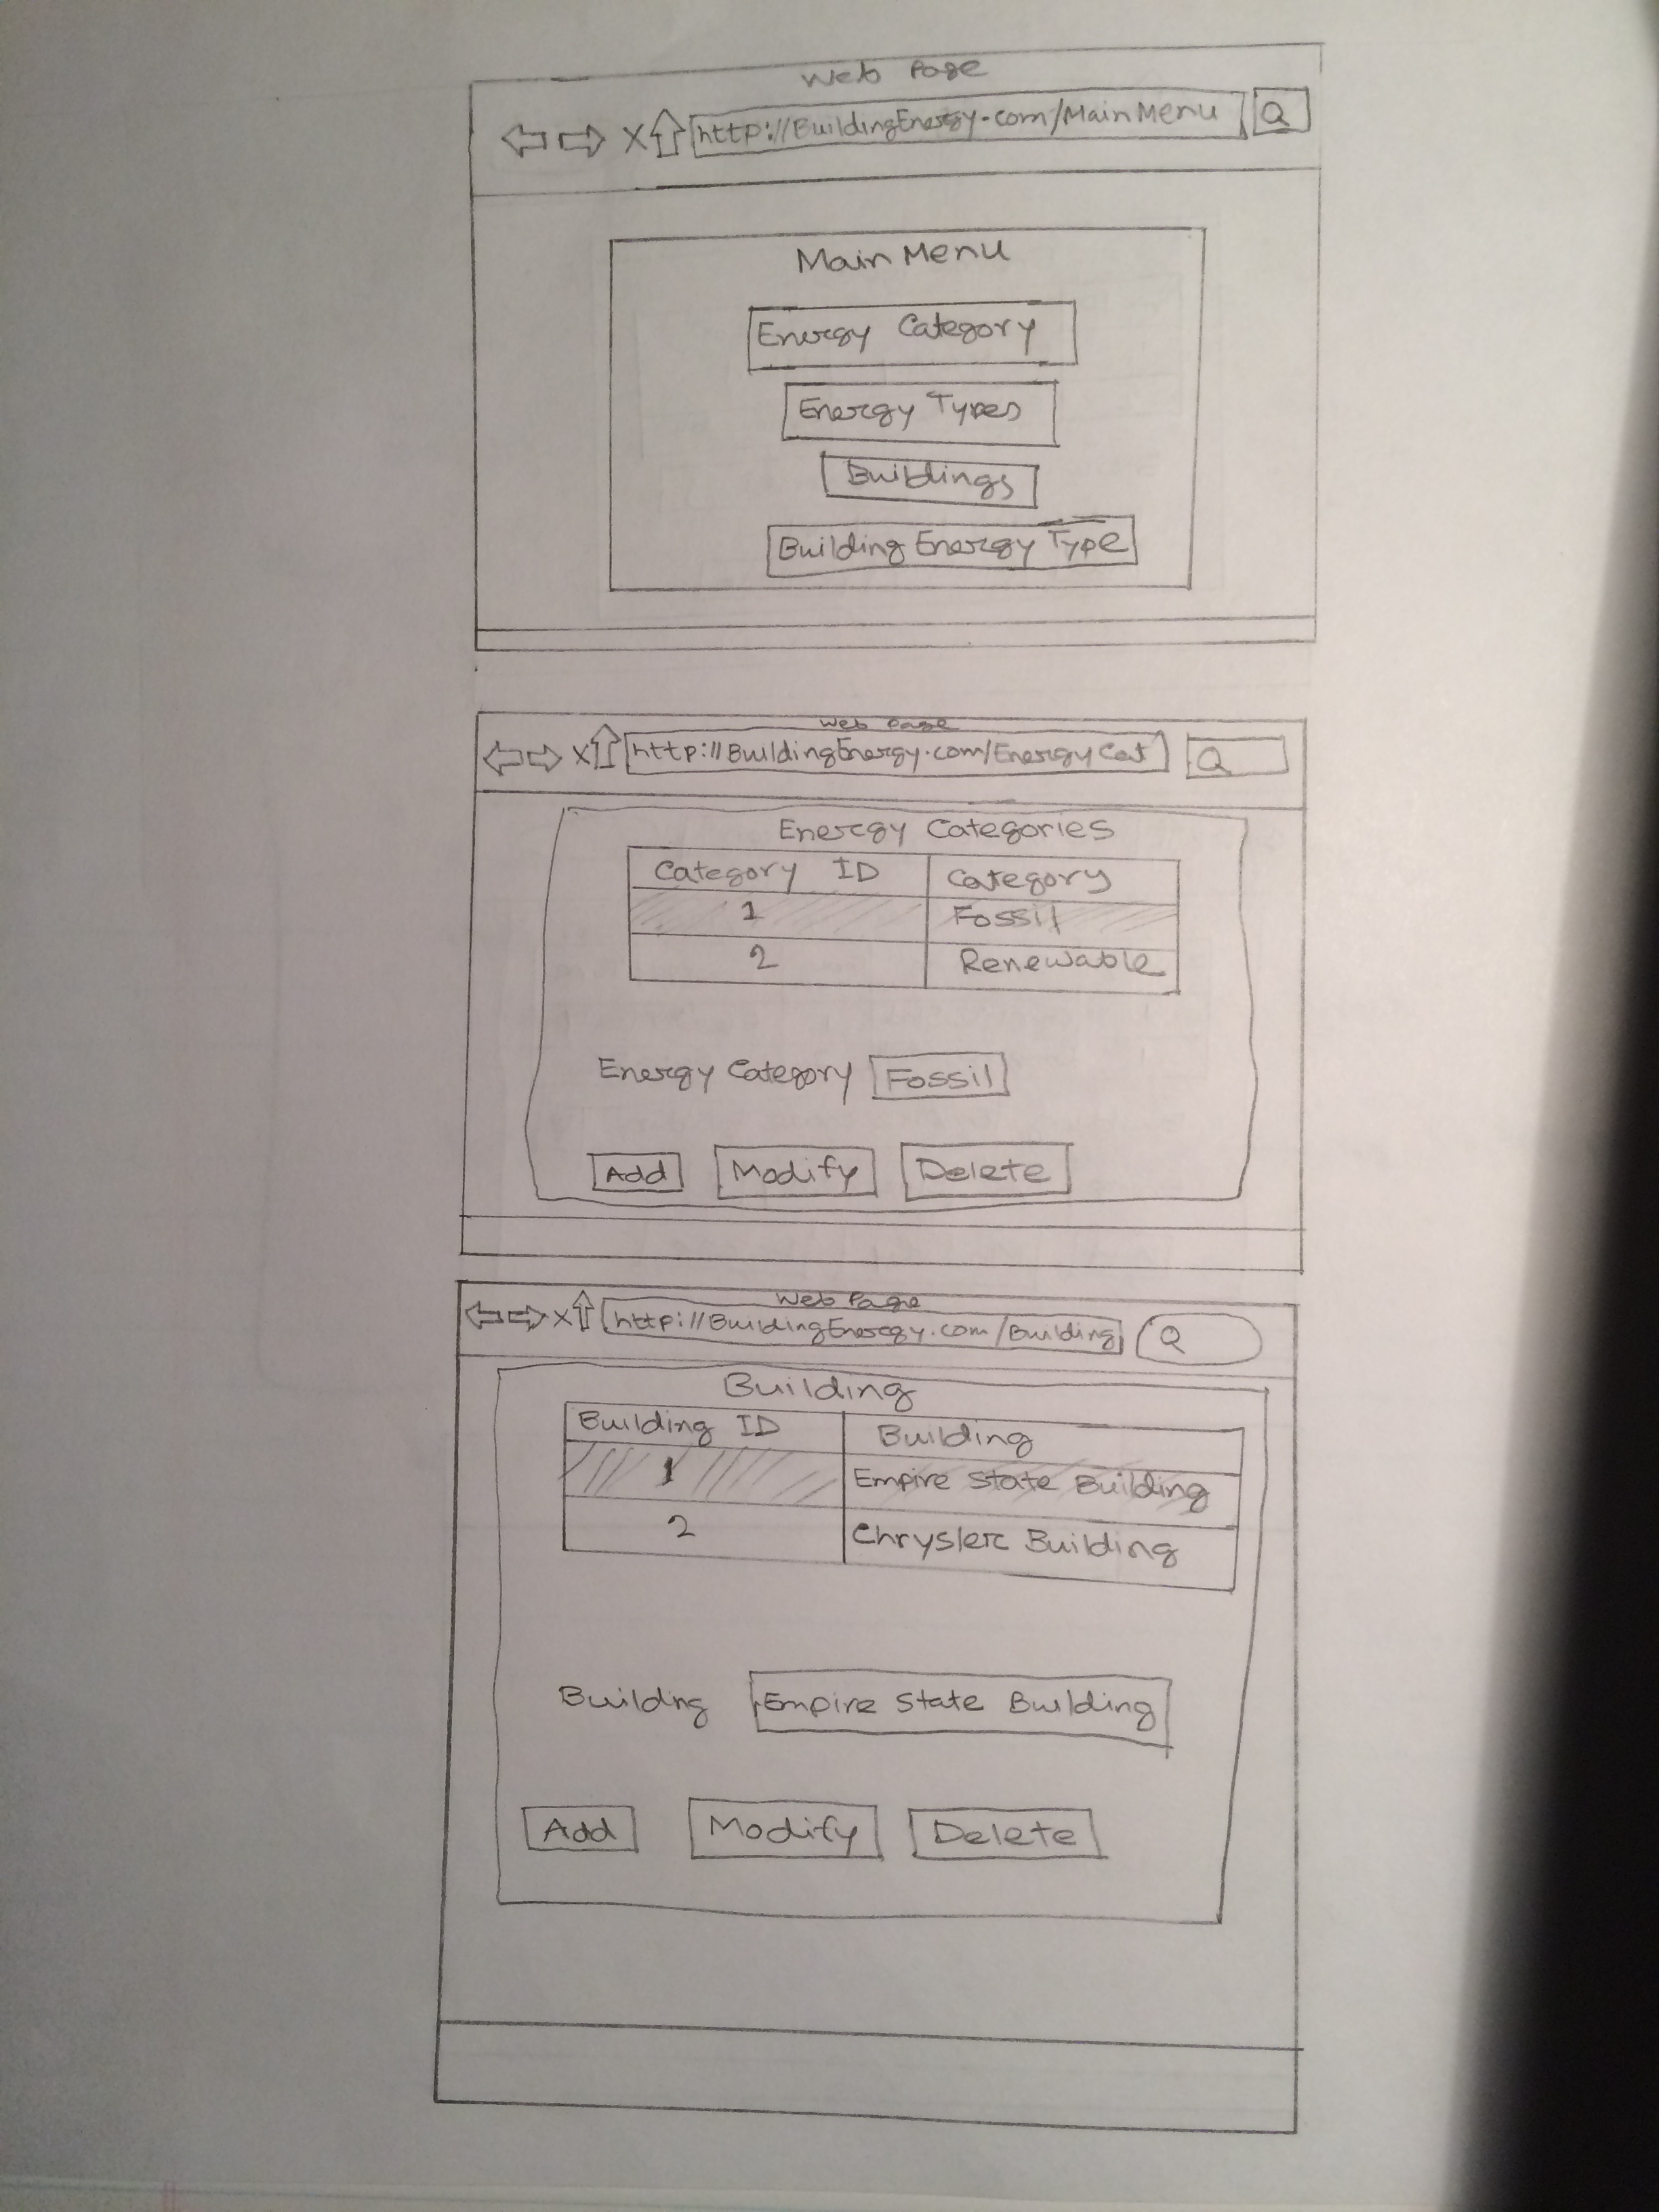 Web Page
X http://BuildingEnergy.com/MainMenu
Main Menu
Energy Category
Energy Types
Buildings
Building Energy Type
Web Page
X http://BuildingEnergy.com/EnergyCat
Energy Categories
Category ID Category
1 Fossil
2 Renewable
Energy Category Fossil
Add Modify Delete
Web Page
X http://BuildingEnergy.com/Building
Building
Building ID Building
1 Empire State Building
2 Chrysler Building
Building Empire State Building
Add Modify Delete